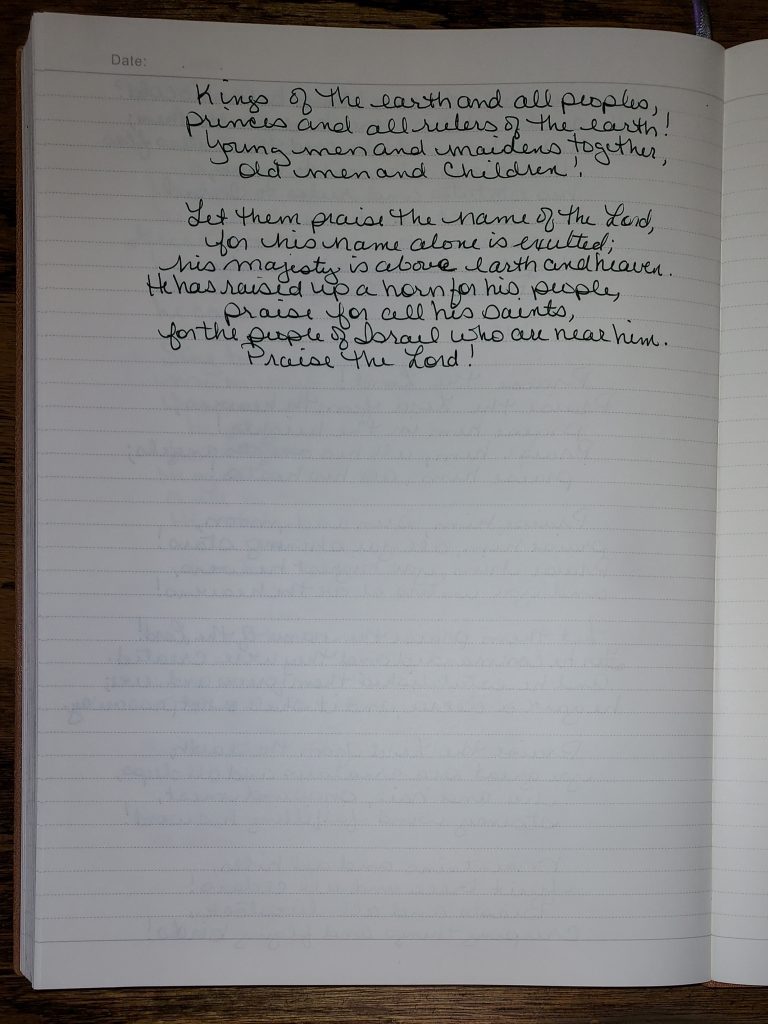 Date:
Kings of the earth and all peoples,
princes and all rulers of the earth!
Young men and maidens together,
old men and children!
Let them praise the name of the Lord,
for his name alone is exulted;
his majesty is above earth and heaven.
He has raised up a horn for his people,
praise for all his saints,
for the people of Israel who are near him.
Praise the Lord!